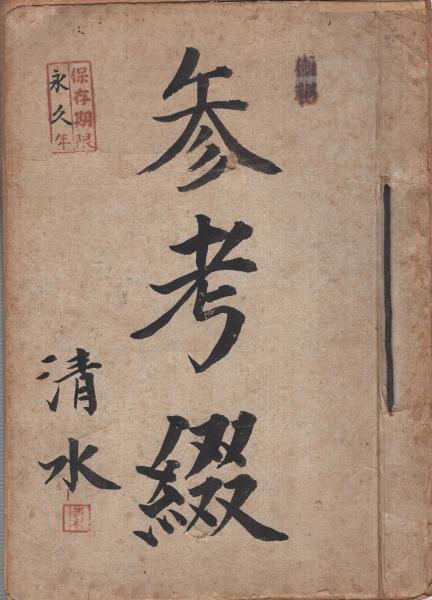 参考綴
保存期限
永久年
清水
清水